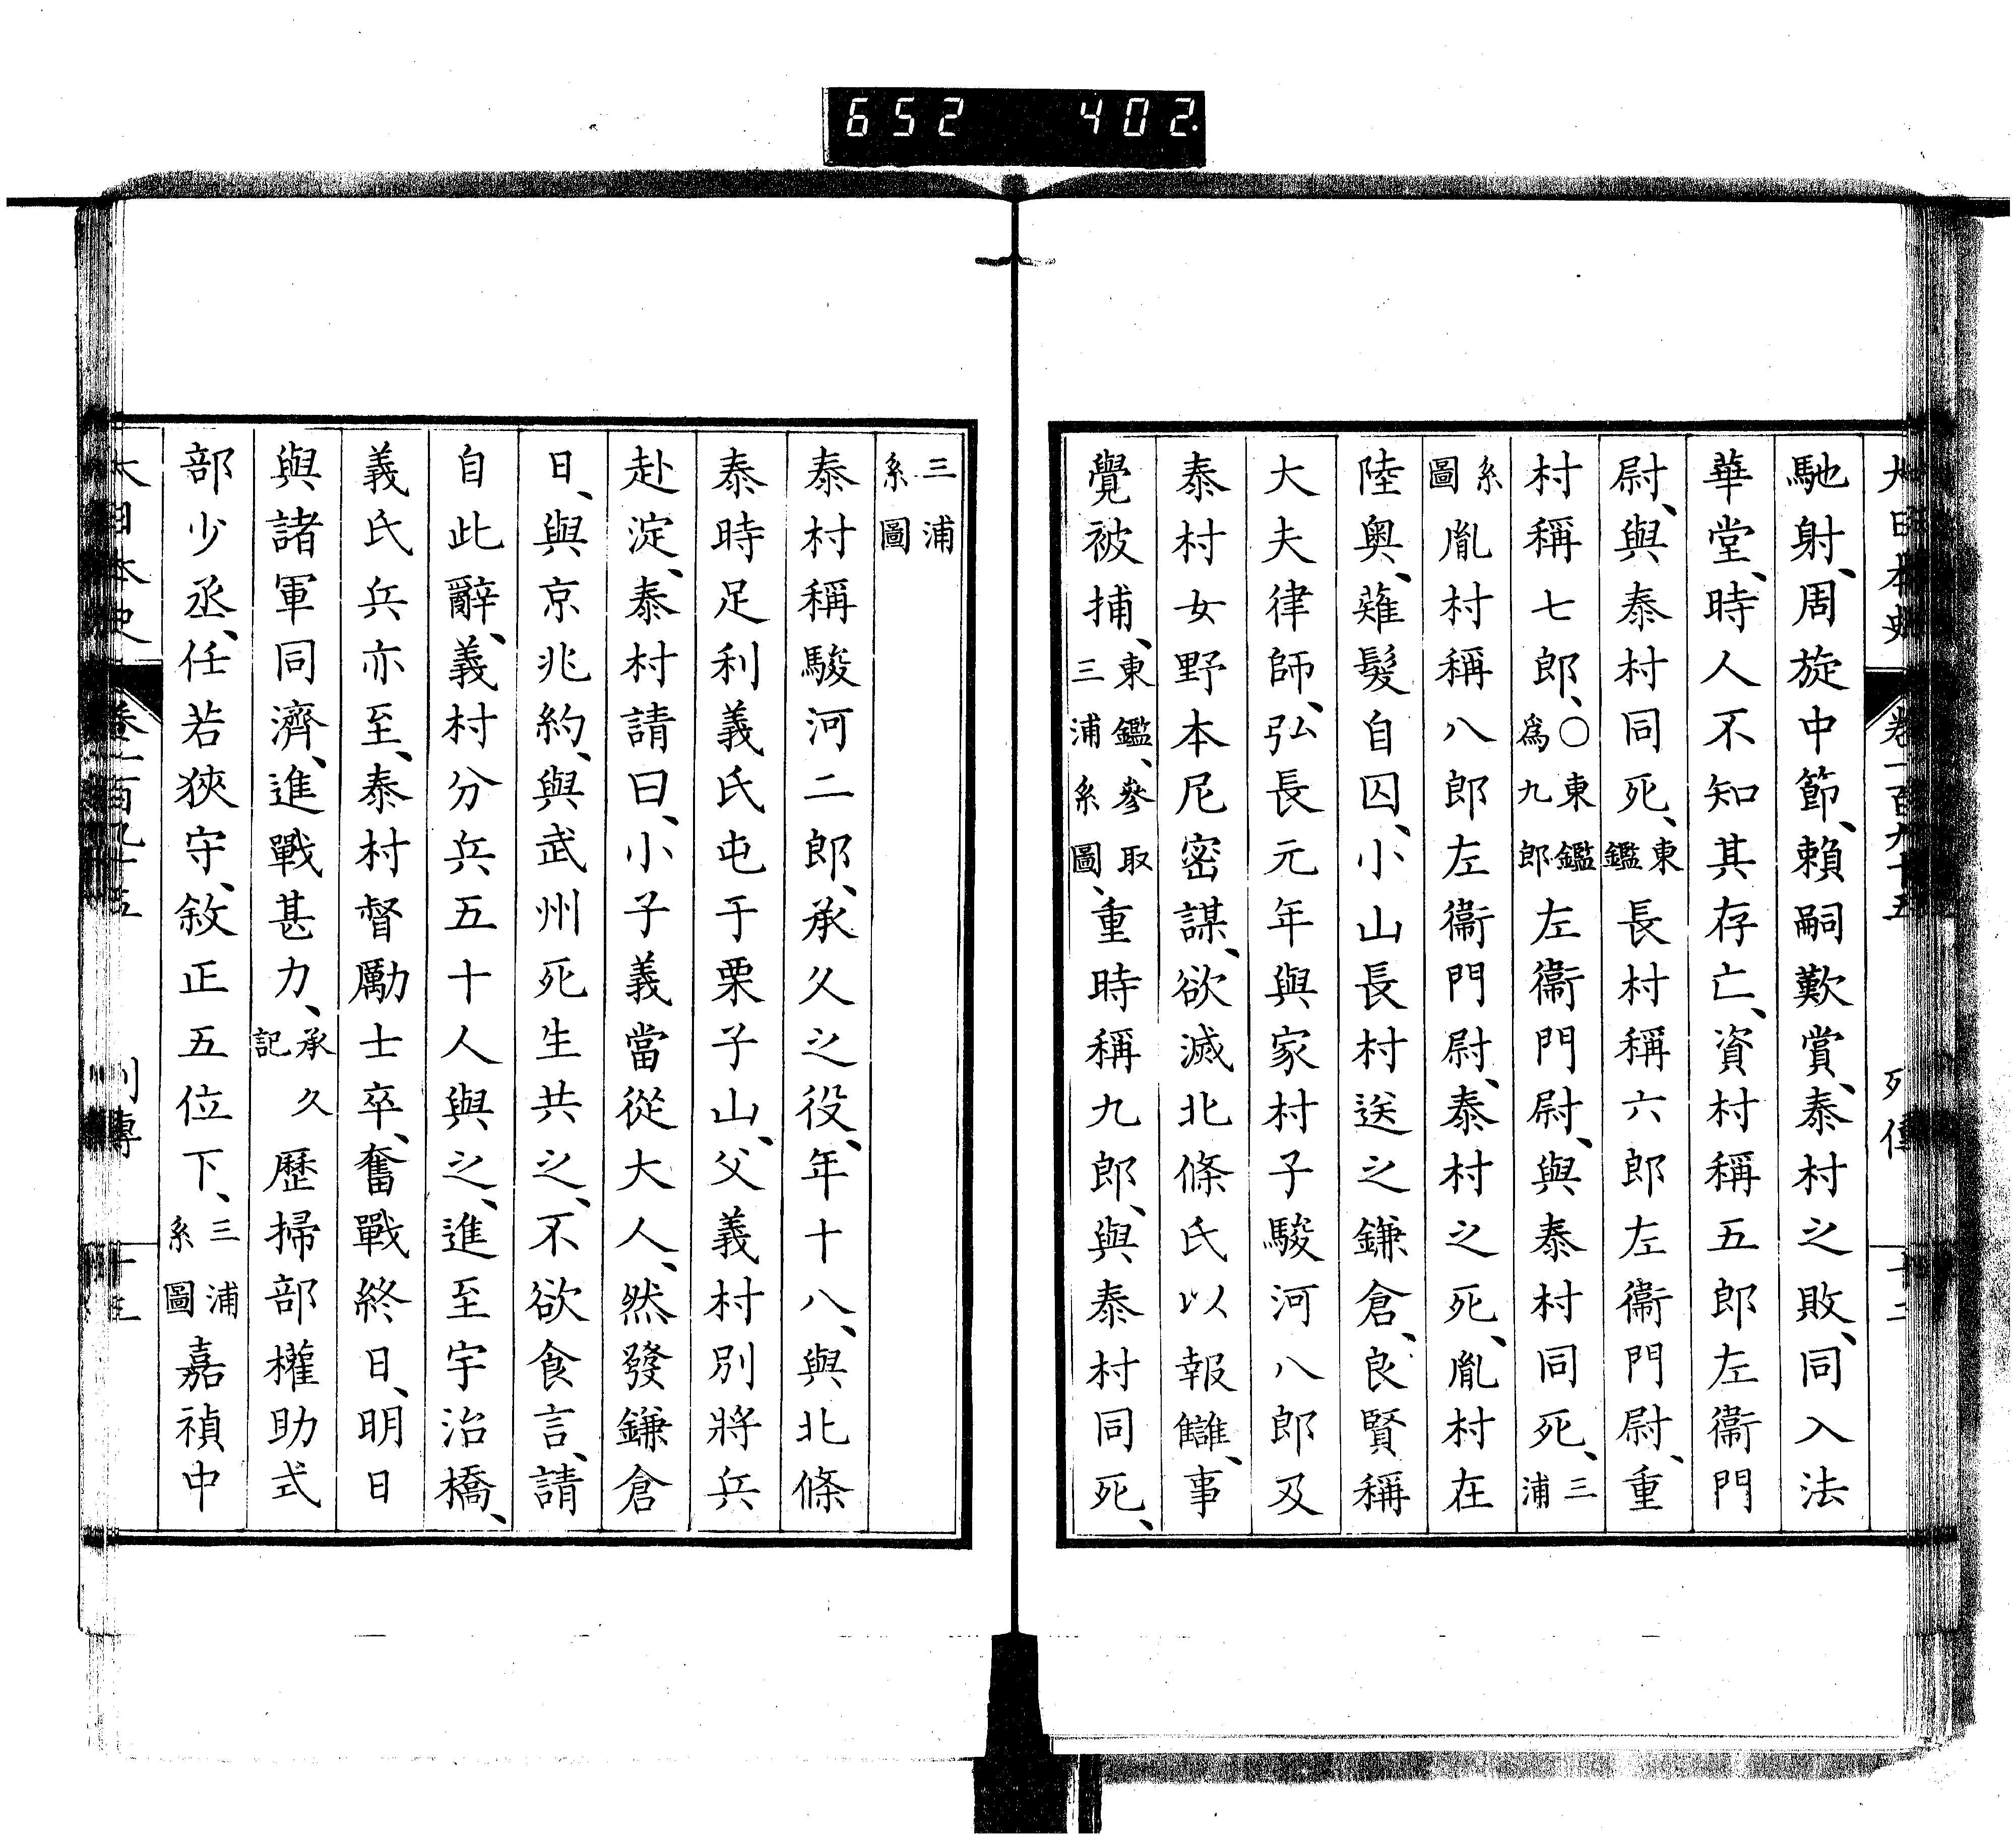 652 402.
大日本史 卷一百九十五 列傳 十二
馳射、周旋中節、賴嗣歎賞、泰村之敗、同入法
華堂、時人不知其存亡、資村稱五郎左衞門
尉、與泰村同死、東鑑長村稱六郎左衞門尉、重
村稱七郎、〇東鑑爲九郎左衞門尉、與泰村同死、三浦
系圖胤村稱八郎左衞門尉、泰村之死、胤村在
陸奥、薙髮自囚、小山長村送之鎌倉、良賢稱
大夫律師、弘長元年與家村子駿河八郎及
泰村女野本尼密謀、欲滅北條氏以報讎、事
覺被捕、東鑑、參取三浦系圖、重時稱九郎、與泰村同死、
三浦系圖
泰村稱駿河二郎、承久之役、年十八、與北條
泰時足利義氏屯于栗子山、父義村別將兵
赴淀、泰村請曰、小子義當從大人、然發鎌倉
日、與京兆約、與武州死生共之、不欲食言、請
自此辭、義村分兵五十人與之、進至宇治橋、
義氏兵亦至、泰村督勵士卒、奮戰終日、明日
與諸軍同濟、進戰甚力、承久記歷掃部權助式
部少丞、任若狹守、敘正五位下、三浦系圖嘉禎中
大日本史 卷一百九十五 列傳 十三